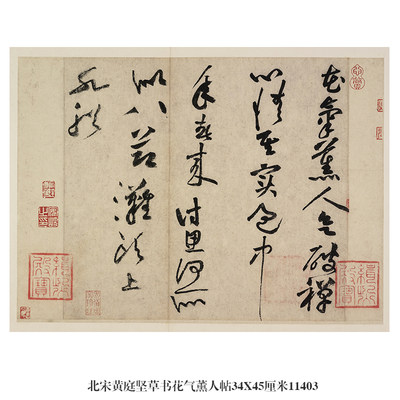 花氣薰人欲破禪
心情其實過中
年春來詩思何所
似八節灘頭上
水船
北宋黄庭坚草书花气薰人帖34X45厘米11403